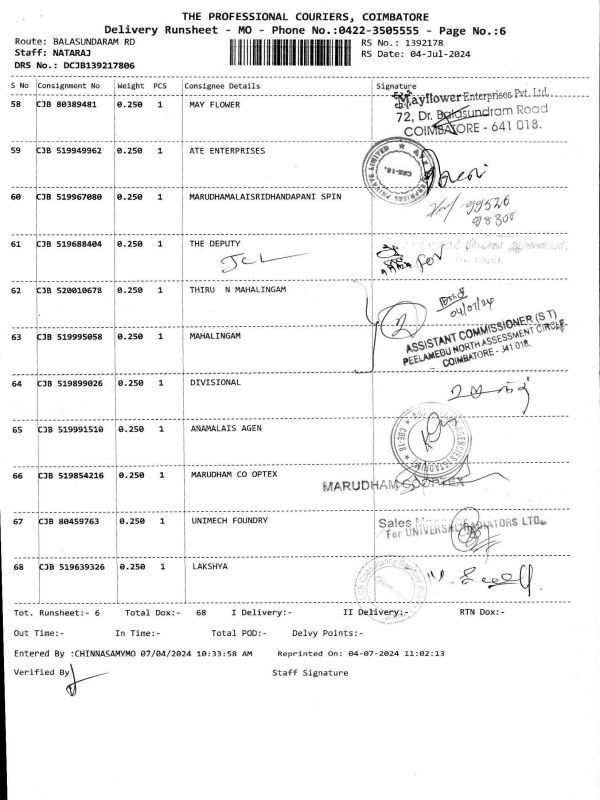 THE PROFESSIONAL COURIERS, COIMBATORE
Delivery Runsheet - MO - Phone No.:0422-3505555 - Page No.:6
Route: BALASUNDARAM RD
RS No.: 1392178
Staff: NATARAJ
RS Date: 04-Jul-2024
DRS No.: DCJB139217806
S No Consignment No Weight PCS Consignee Details Signature
58 CJB 80389481 0.250 1 MAY FLOWER
Mayflower Enterprises Pvt. Ltd.
72, Dr. Balasundram Road
COIMBATORE - 641 018.
59 CJB 519949962 0.250 1 ATE ENTERPRISES
60 CJB 519967080 0.250 1 MARUDHAMALAISRIDHANDAPANI SPIN
99520
98300
61 CJB 519688404 0.250 1 THE DEPUTY
JCL
for
62 CJB 520010678 0.250 1 THIRU N MAHALINGAM
2
04/07/24
63 CJB 519995058 0.250 1 MAHALINGAM
ASSISTANT COMMISSIONER (S T)
PEELAMEDU NORTH ASSESSMENT CIRCLE
COIMBATORE - 641 018.
64 CJB 519899026 0.250 1 DIVISIONAL
65 CJB 519991510 0.250 1 ANAMALAIS AGEN
66 CJB 519854216 0.250 1 MARUDHAM CO OPTEX
MARUDHAM COOPTEX
67 CJB 80459763 0.250 1 UNIMECH FOUNDRY
Sales
For UNIVERSAL RADIATORS LTD.
68 CJB 519639326 0.250 1 LAKSHYA
Tot. Runsheet:- 6 Total Dox:- 68 I Delivery:- II Delivery:- RTN Dox:-
Out Time:- In Time:- Total POD:- Delvy Points:-
Entered By :CHINNASAMYMO 07/04/2024 10:33:58 AM Reprinted On: 04-07-2024 11:02:13
Verified By Staff Signature